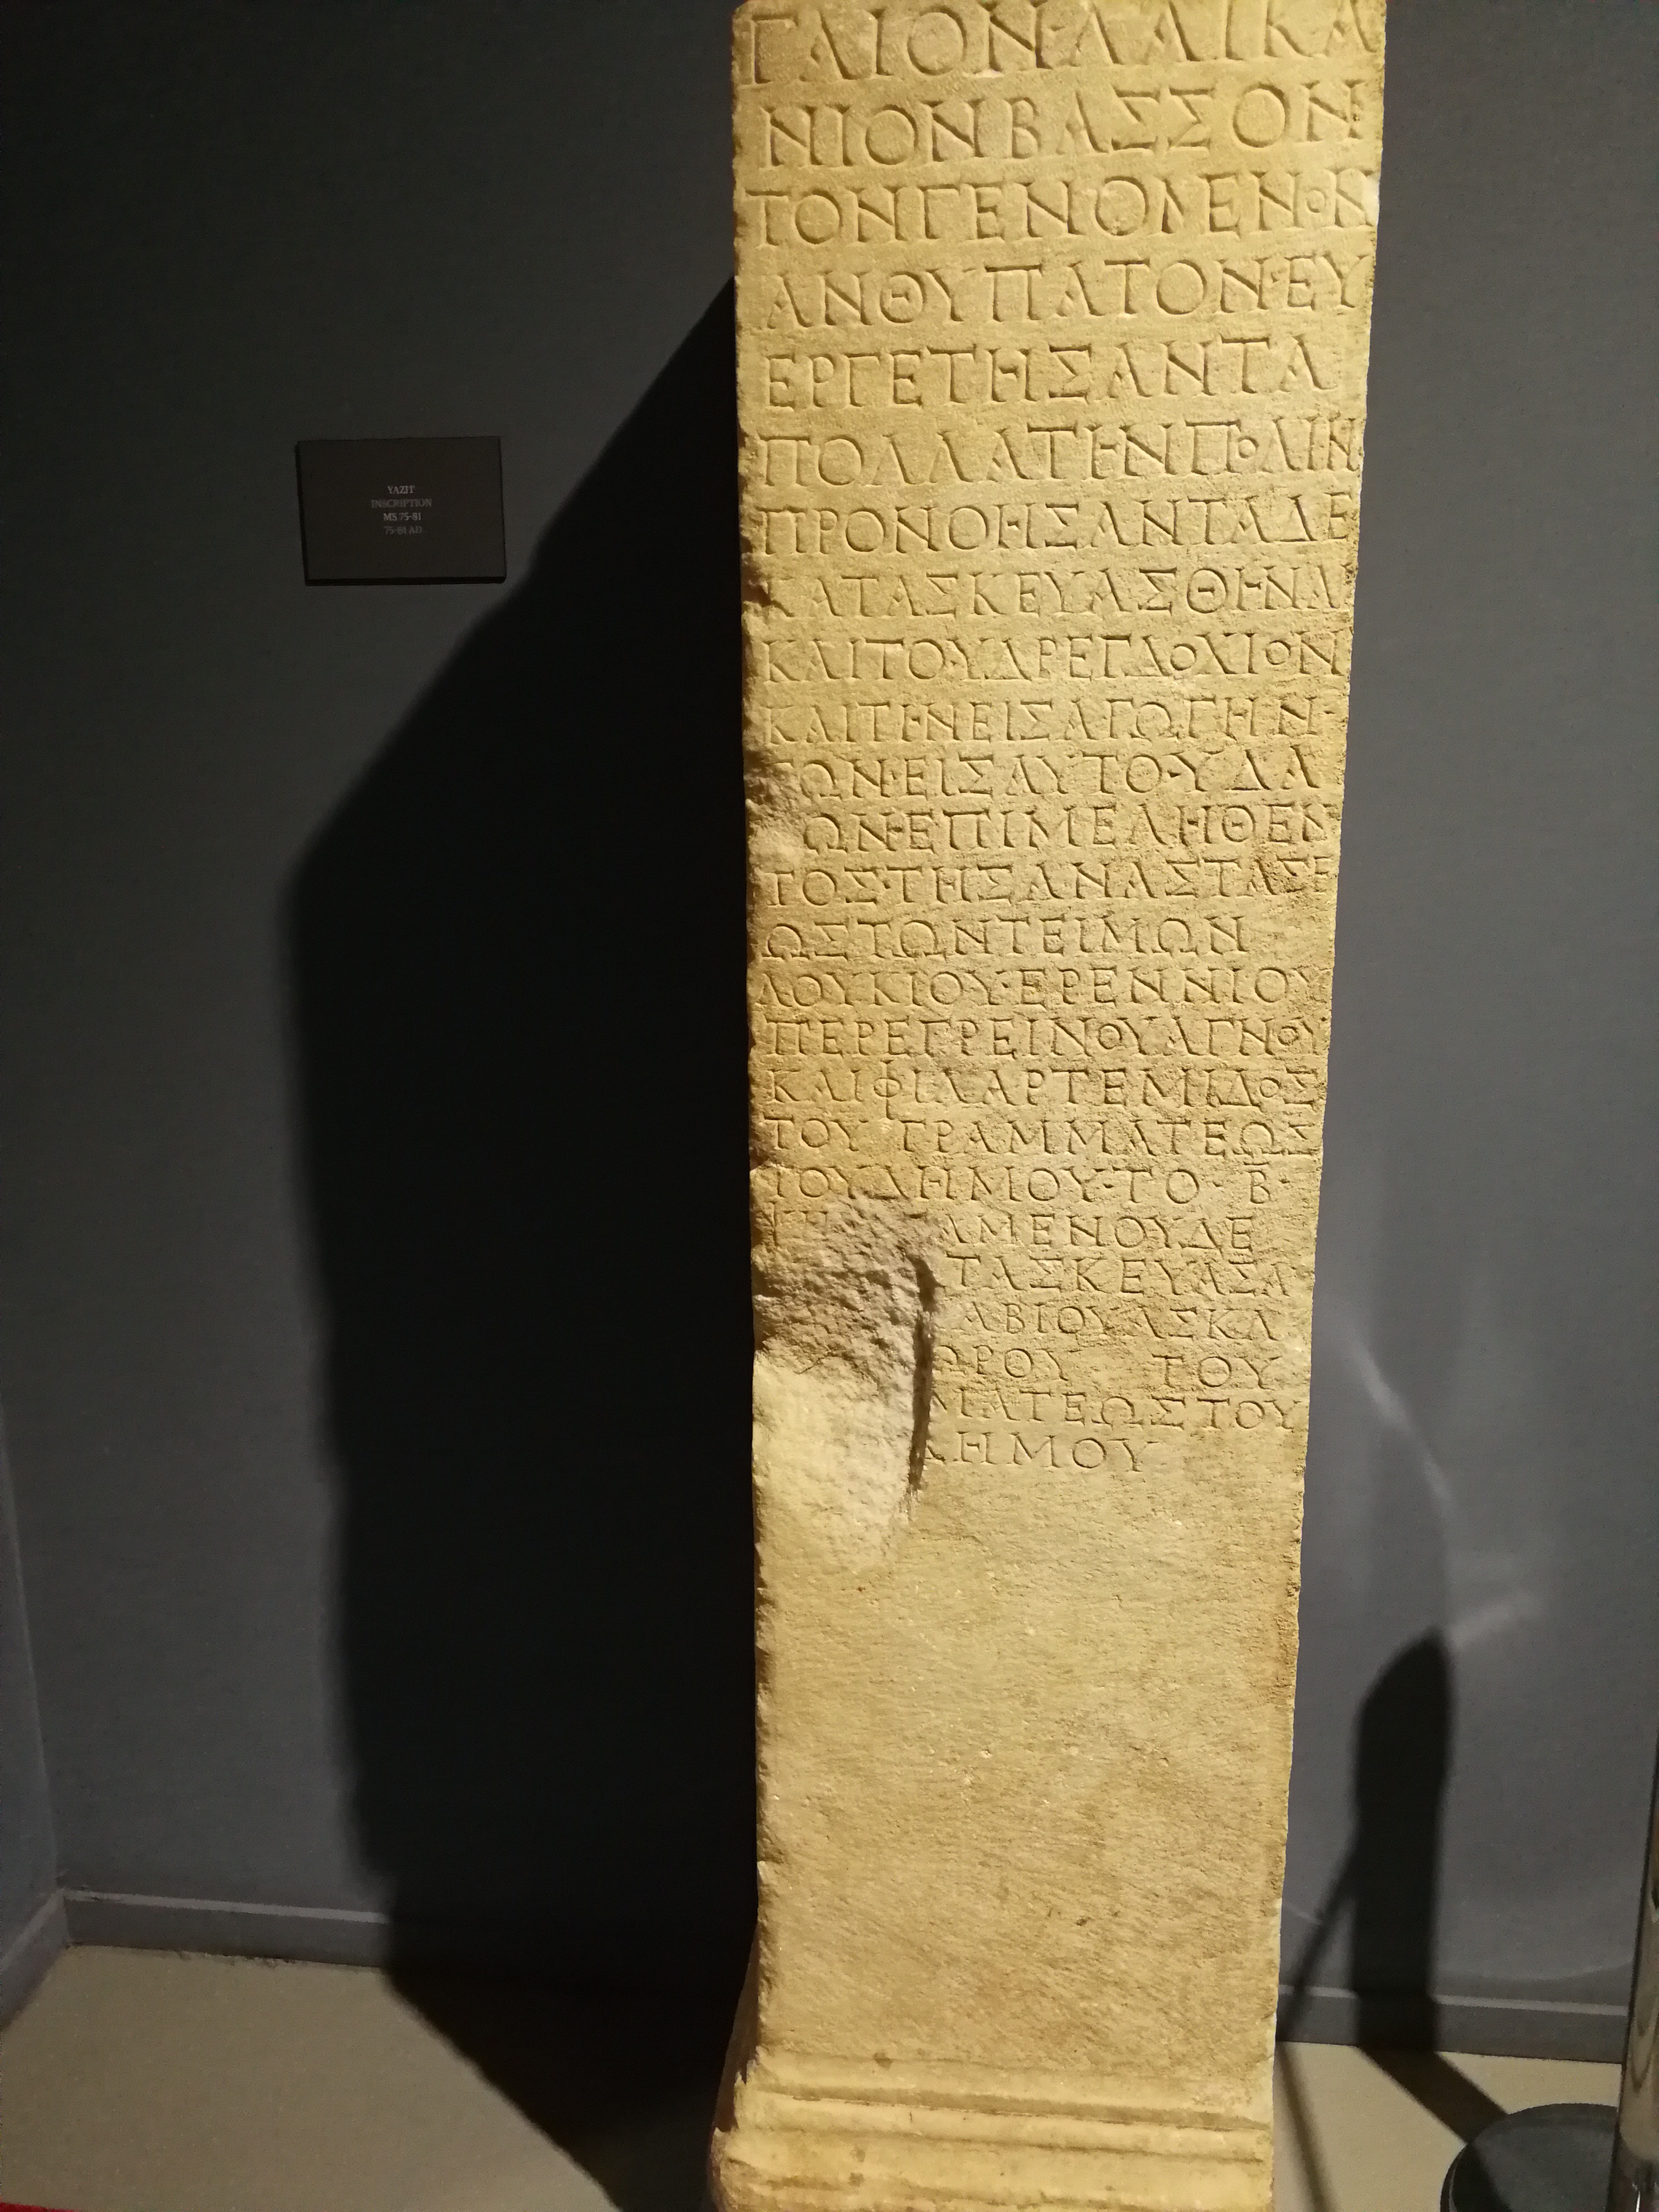 YAZIT
INSCRIPTION
MS 75-81
75-81 AD
ΓΑΙΟΝ·ΛΑΙΚΑ
ΝΙΟΝΒΑΣΣΟΝ
ΤΟΝΓΕΝΟΜΕΝΟΝ
ΑΝΘΥΠΑΤΟΝ·ΕΥ
ΕΡΓΕΤΗΣΑΝΤΑ
ΠΟΛΛΑΤΗΝΠΟΛΙΝ
ΠΡΟΝΟΗΣΑΝΤΑΔΕ
ΚΑΤΑΣΚΕΥΑΣΘΗΝΑΙ
ΚΑΙΤΟΥΔΡΕΓΔΟΧΙΟΝ
ΚΑΙΤΗΝΕΙΣΑΓΩΓΗΝ·
ΤΩΝ·ΕΙΣΑΥΤΟ·ΥΔΑ
ΩΝ·ΕΠΙΜΕΛΗΘΕΝ
ΤΟΣ·ΤΗΣΑΝΑΣΤΑΣΕ
ΩΣΤΩΝΤΕΙΜΩΝ
ΛΟΥΚΙΟΥ·ΕΡΕΝΝΙΟΥ
ΠΕΡΕΓΡΕΙΝΟΥΑΓΝΟΥ
ΚΑΙΦΙΛΑΡΤΕΜΙΔΟΣ
ΤΟΥ ΓΡΑΜΜΑΤΕΩΣ
ΤΟΥΔΗΜΟΥ·ΤΟ·Β·
ΑΜΕΝΟΥΔΕ
ΤΑΣΚΕΥΑΣΑ
ΑΒΙΟΥΑΣΚΛ
ΩΡΟΥ ΤΟΥ
ΜΑΤΕΩΣΤΟΥ
ΔΗΜΟΥ